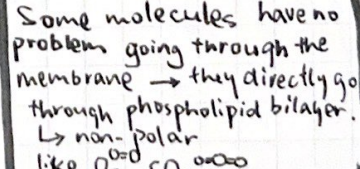 Some molecules have no
problem going through the
membrane → they directly go
through phospholipid bilayer.
↳ non-polar
like